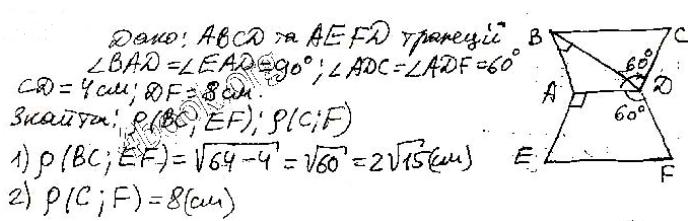 Дано: ABCD та AEFD трапеції
∠BAD=∠EAD=90°; ∠ADC=∠ADF=60°
CD=4см; DF=8см.
Знайти: ρ(BC; EF); ρ(C; F)
1) ρ(BC; EF)=√64-4=√60=2√15(см)
2) ρ(C; F)=8(см)
B C
60°
A D
60°
E F